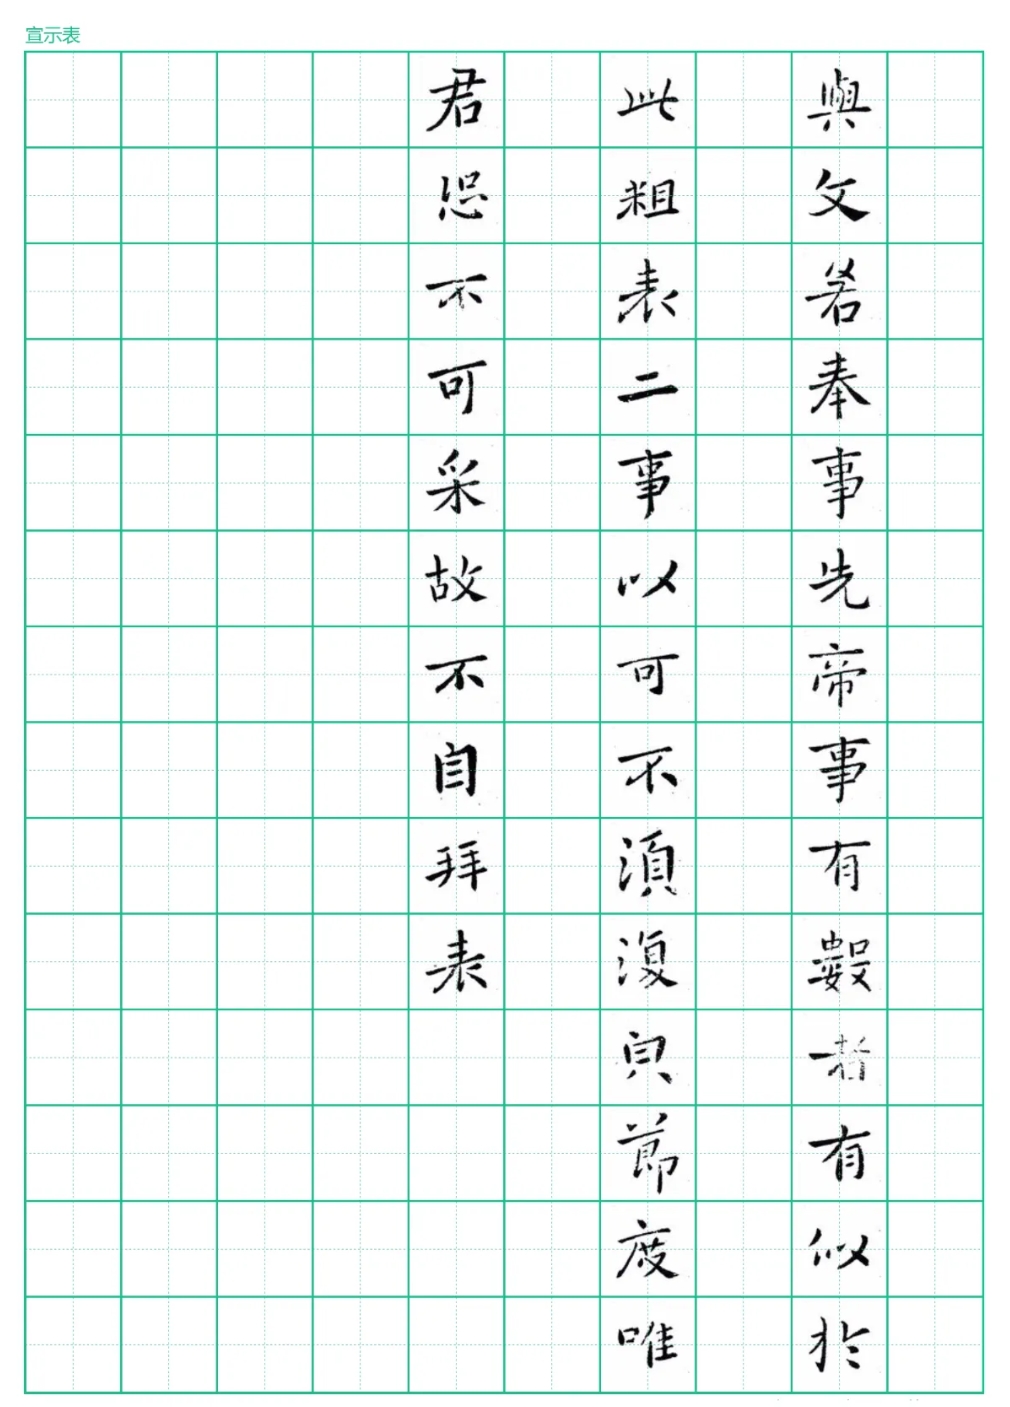 宣示表
與文若奉事先帝事有數者有似於
此粗表二事以可不須復皃節度唯
君恐不可采故不自拜表